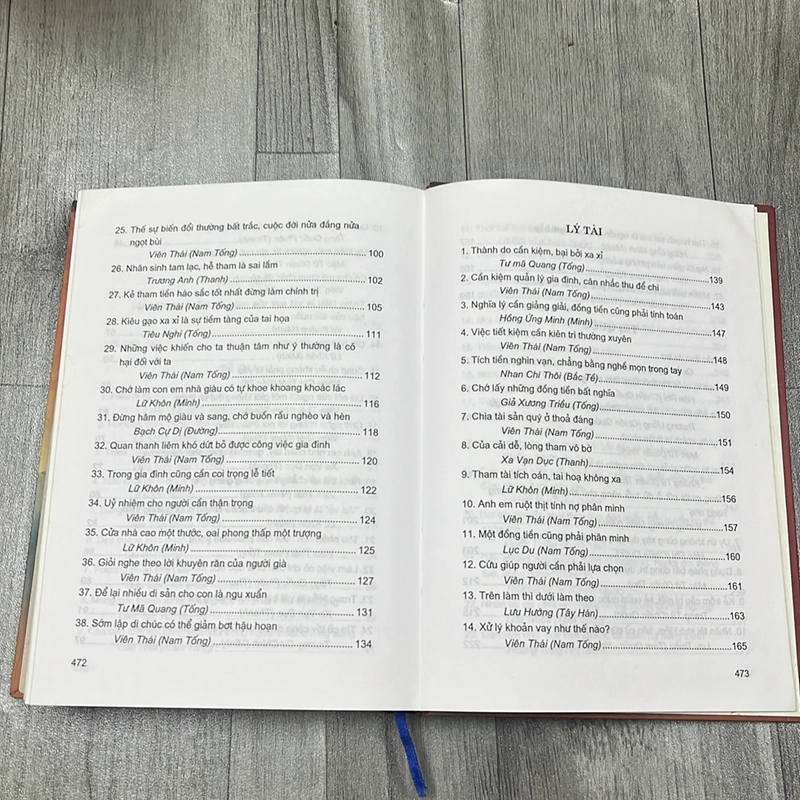 25. Thế sự biến đổi thường bất trắc, cuộc đời nửa đắng nửa
ngọt bùi
Viên Thái (Nam Tống) 100
26. Nhân sinh tam lạc, hễ tham là sai lầm
Trương Anh (Thanh) 102
27. Kẻ tham tiền háo sắc tốt nhất đừng làm chính trị
Viên Thái (Nam Tống) 105
28. Kiêu gạo xa xỉ là sự tiềm tàng của tai họa
Tiêu Nghi (Tống) 111
29. Những việc khiến cho ta thuận tâm như ý thường là có
hại đối với ta
Viên Thái (Nam Tống) 112
30. Chớ làm con em nhà giàu có tự khoe khoang khoác lác
Lữ Khôn (Minh) 116
31. Đừng hâm mộ giàu và sang, chớ buồn rầu nghèo và hèn
Bạch Cự Dị (Đường) 118
32. Quan thanh liêm khó dứt bỏ được công việc gia đình
Viên Thái (Nam Tống) 120
33. Trong gia đình cũng cần coi trọng lễ tiết
Lữ Khôn (Minh) 122
34. Uỷ nhiệm cho người cần thận trọng
Viên Thái (Nam Tống) 124
35. Cửa nhà cao một thước, oai phong thấp một trượng
Lữ Khôn (Minh) 125
36. Giỏi nghe theo lời khuyên răn của người già
Viên Thái (Nam Tống) 127
37. Để lại nhiều di sản cho con là ngu xuẩn
Tư Mã Quang (Tống) 131
38. Sớm lập di chúc có thể giảm bớt hậu hoạn
Viên Thái (Nam Tống) 134
472
LÝ TÀI
1. Thành do cần kiệm, bại bởi xa xỉ
Tư mã Quang (Tống) 139
2. Cần kiệm quản lý gia đình, cân nhắc thu để chi
Viên Thái (Nam Tống) 143
3. Nghĩa lý cần giảng giải, đồng tiền cũng phải tính toán
Hồng Ứng Minh (Minh) 147
4. Việc tiết kiệm cần kiên trì thường xuyên
Viên Thái (Nam Tống) 148
5. Tích tiền nghìn vạn, chẳng bằng nghề mọn trong tay
Nhan Chi Thôi (Bắc Tề) 149
6. Chớ lấy những đồng tiền bất nghĩa
Giả Xương Triều (Tống) 150
7. Chia tài sản quý ở thoả đáng
Viên Thái (Nam Tống) 151
8. Của cải dễ, lòng tham vô bờ
Xa Vạn Dục (Thanh) 154
9. Tham tài tích oán, tai hoạ không xa
Lữ Khôn (Minh) 156
10. Anh em ruột thịt tính nợ phân minh
Viên Thái (Nam Tống) 157
11. Một đồng tiền cũng phải phân minh
Lục Du (Nam Tống) 160
12. Cứu giúp người cần phải lựa chọn
Viên Thái (Nam Tống) 161
13. Trên làm thì dưới làm theo
Lưu Hướng (Tây Hán) 163
14. Xử lý khoản vay như thế nào?
Viên Thái (Nam Tống) 165
473